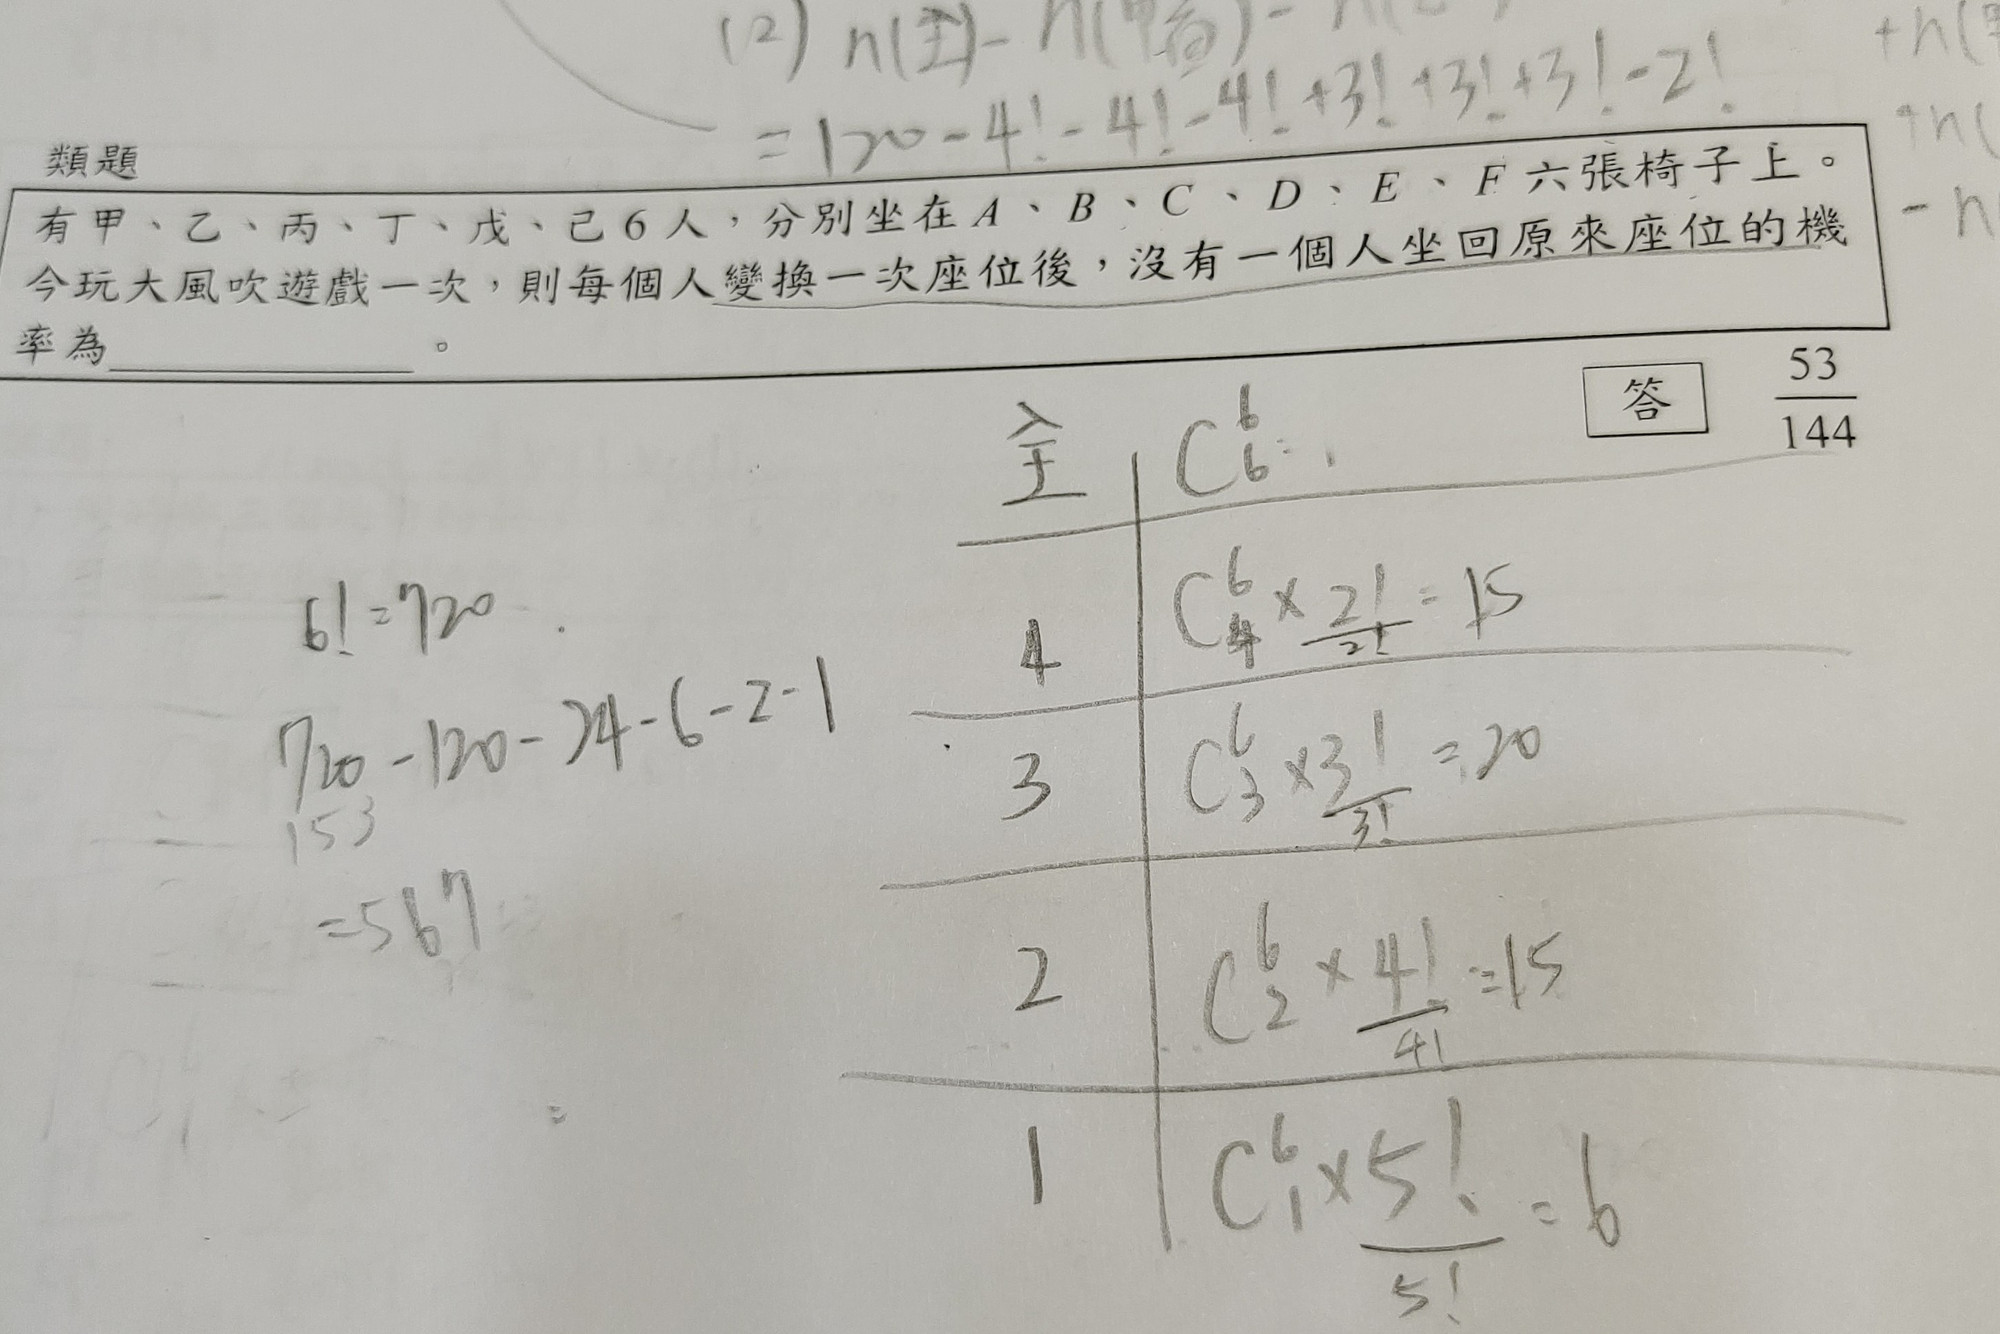 (2) n(全)-n(甲首)-n(
=120-4!-4!-4!+3!+3!+3!-2!
+n(
+n(
-n(
類題
有甲、乙、丙、丁、戊、己6人，分別坐在A、B、C、D、E、F六張椅子上。
今玩大風吹遊戲一次，則每個人變換一次座位後，沒有一個人坐回原來座位的機
率為 。
答 53/144
全 C⁶₆=1
6!=720
4 C⁶₄×2!/2!=15
720-120-24-6-2-1
153
3 C⁶₃×3!/3!=20
=567
2 C⁶₂×4!/4!=15
=
1 C⁶₁×5!/5!=6